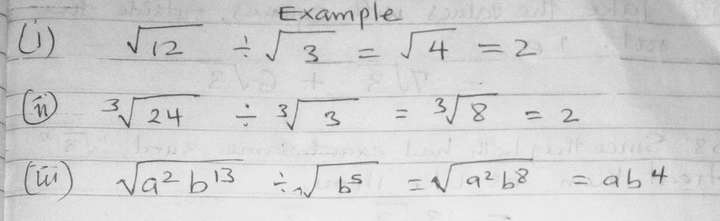 Example
(i) √12 ÷ √3 = √4 = 2
(ii) ³√24 ÷ ³√3 = ³√8 = 2
(iii) √a²b¹³ ÷ √b⁵ = √a²b⁸ = ab⁴